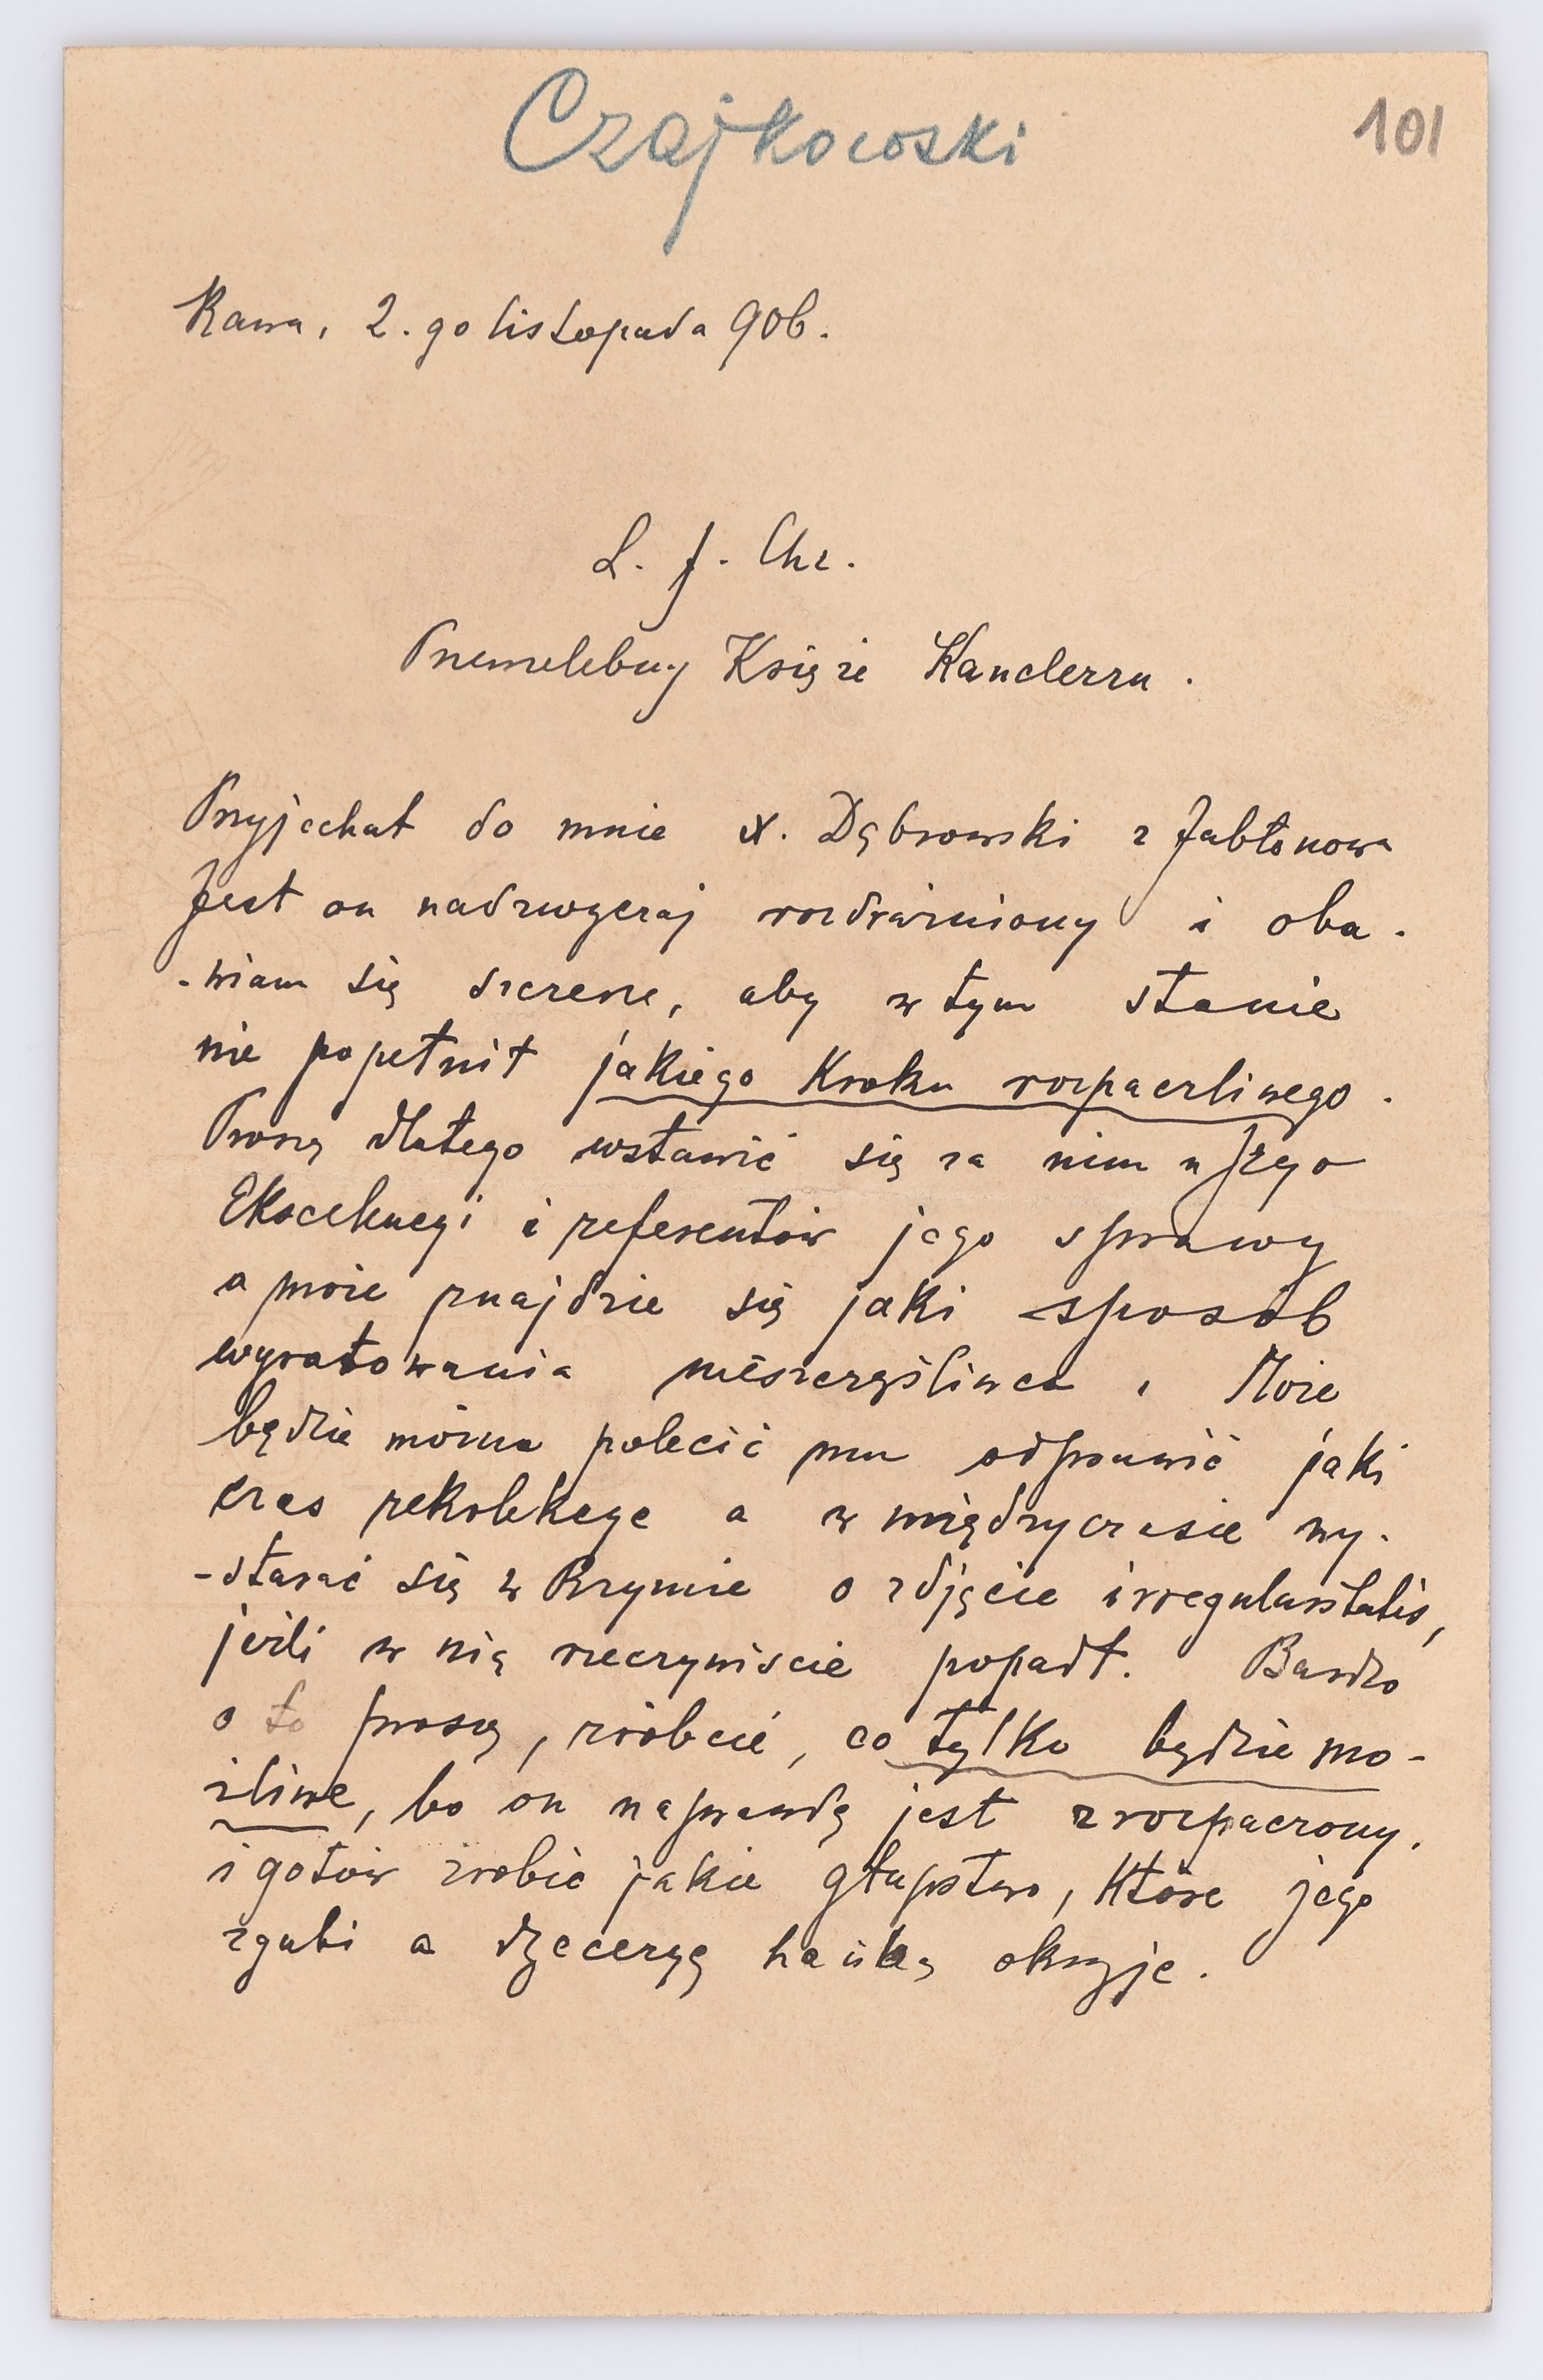 Czajkowski
101
Rawa, 2. go listopada 906.
L. J. Chr.
Przewielebny Księże Kanclerzu.
Przyjechał do mnie X. Dąbrowski z Jabłonowa
Jest on nadzwyczaj rozdrażniony i oba-
-wiam się szczerze, aby w tym stanie
nie popełnił jakiego kroku rozpaczliwego.
Proszę dlatego wstawić się za nim u Jego
Ekscelencyi i referentów jego sprawy
a może znajdzie się jaki sposób
wyratowania nieszczęśliwca. Może
będzie można polecić mu odprawić jaki
czas rekolekcye a w międzyczasie wy-
-starać się w Rzymie o zdjęcie irregularitatis,
jeżli w nią rzeczywiście popadł. Bardzo
o to proszę, zróbcie, co tylko będzie mo-
żliwe, bo on naprawdę jest zrozpaczony,
i gotów zrobić jakie głupstwo, które jego
zgubi a dyecezyę hańbą okryje.